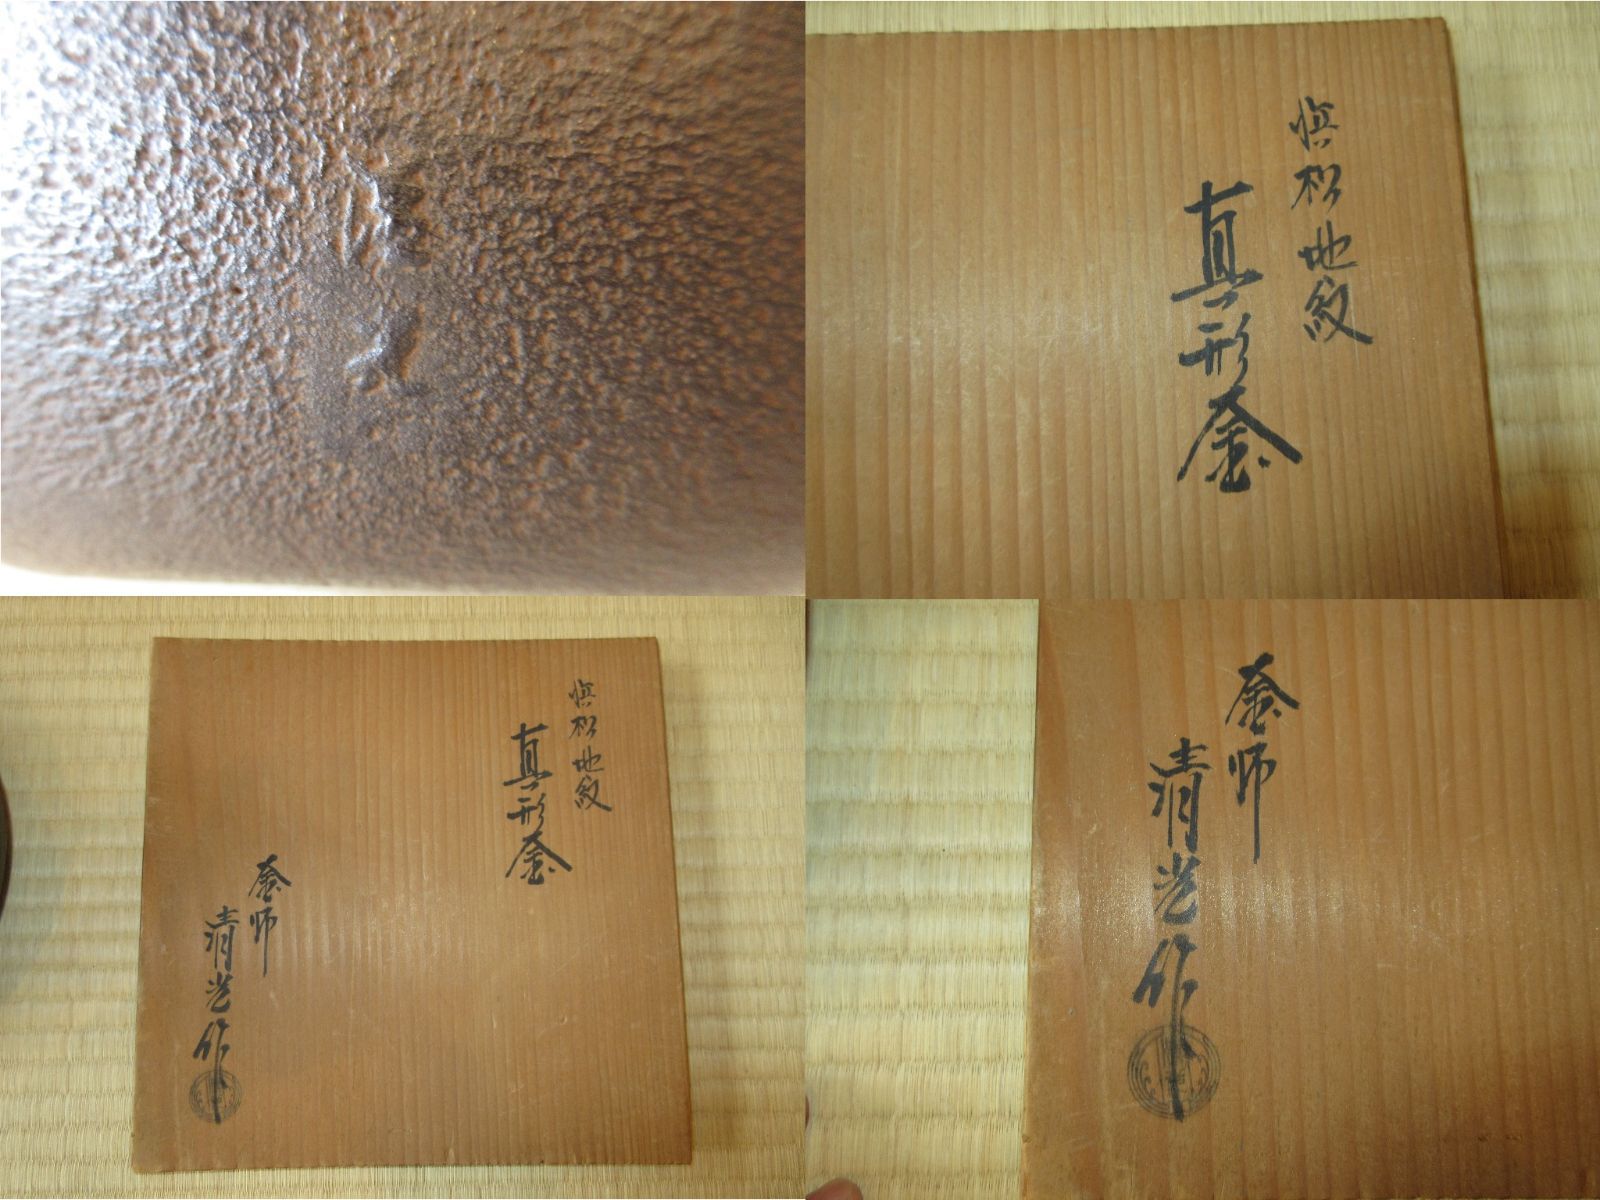 浜松地紋
真形釜
浜松地紋
真形釜
釜師
清光作
釜師
清光作